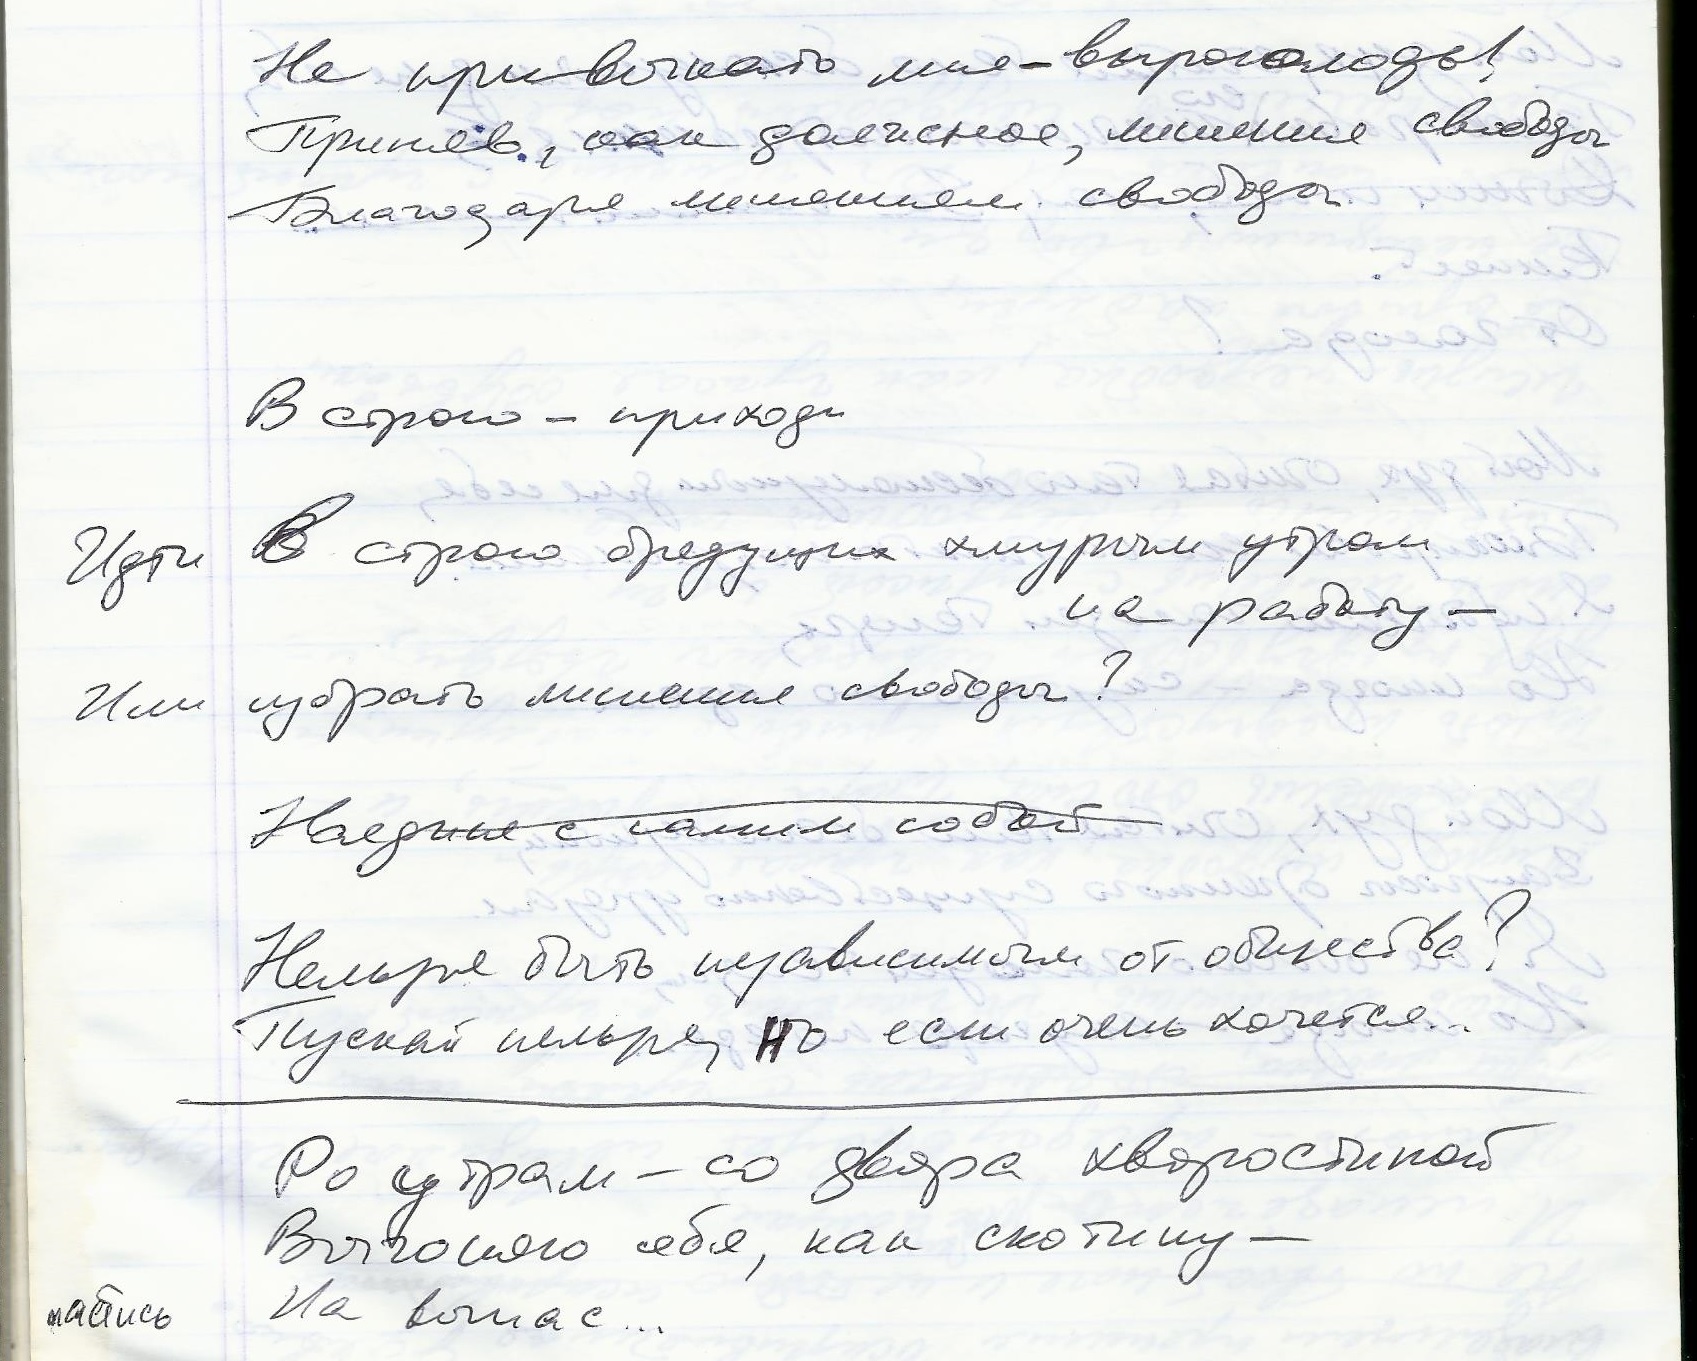 Не привыкать мне - выро голоды!
Приняв, как должное, лишение свободы
Благодаря лишениям свободы
В строю - приходи
Идти В строю бредущих хмурым утром
на работу -
Или избрать лишение свободы?
Наедине с самим собой
Нельзя быть независимым от общества?
Пускай нельзя, но если очень хочется...
По утрам - со двора хворостиной
Выгоняю себя, как скотину -
пастись На выпас...